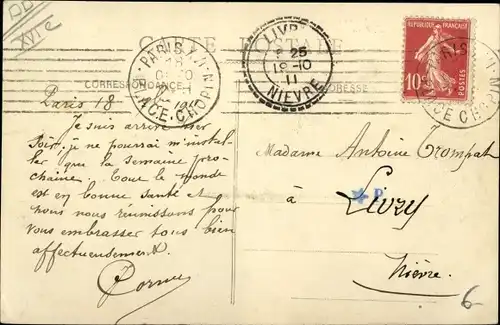 XVIe
CARTE POSTALE
CORRESPONDANCE
ADRESSE
PARIS XVI
PLACE CHOPIN
LIVRY
25
19-10
11
NIEVRE
10c
POSTES
PLACE CHOPIN
Paris 18
Je suis arrivé hier
Soir, je ne pourrai m'instal-
ler que la semaine pro-
chaine. Tout le monde
est en bonne santé et
nous nous réunissons pour
vous embrasser tous bien
affectueusement.
Madame Antoine Trompat
à Livry
Nièvre
P.
6